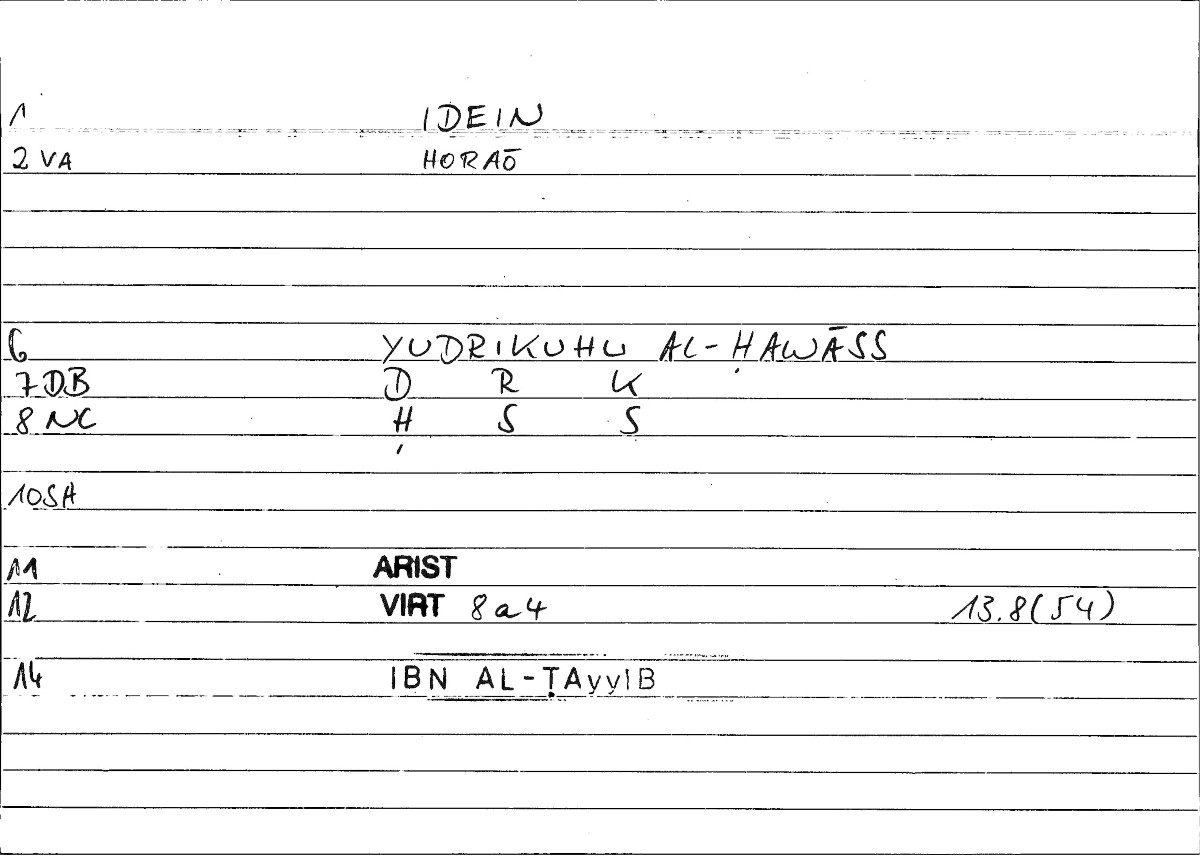 1 IDEIN
2 VA HORAŌ
6 YUDRIKUHU AL-ḤAWĀSS
7 DB D R K
8 NC Ḥ S S
10 SH
11 ARIST
12 VIRT 8a4 13.8(54)
14 IBN AL-ṬAyyIB